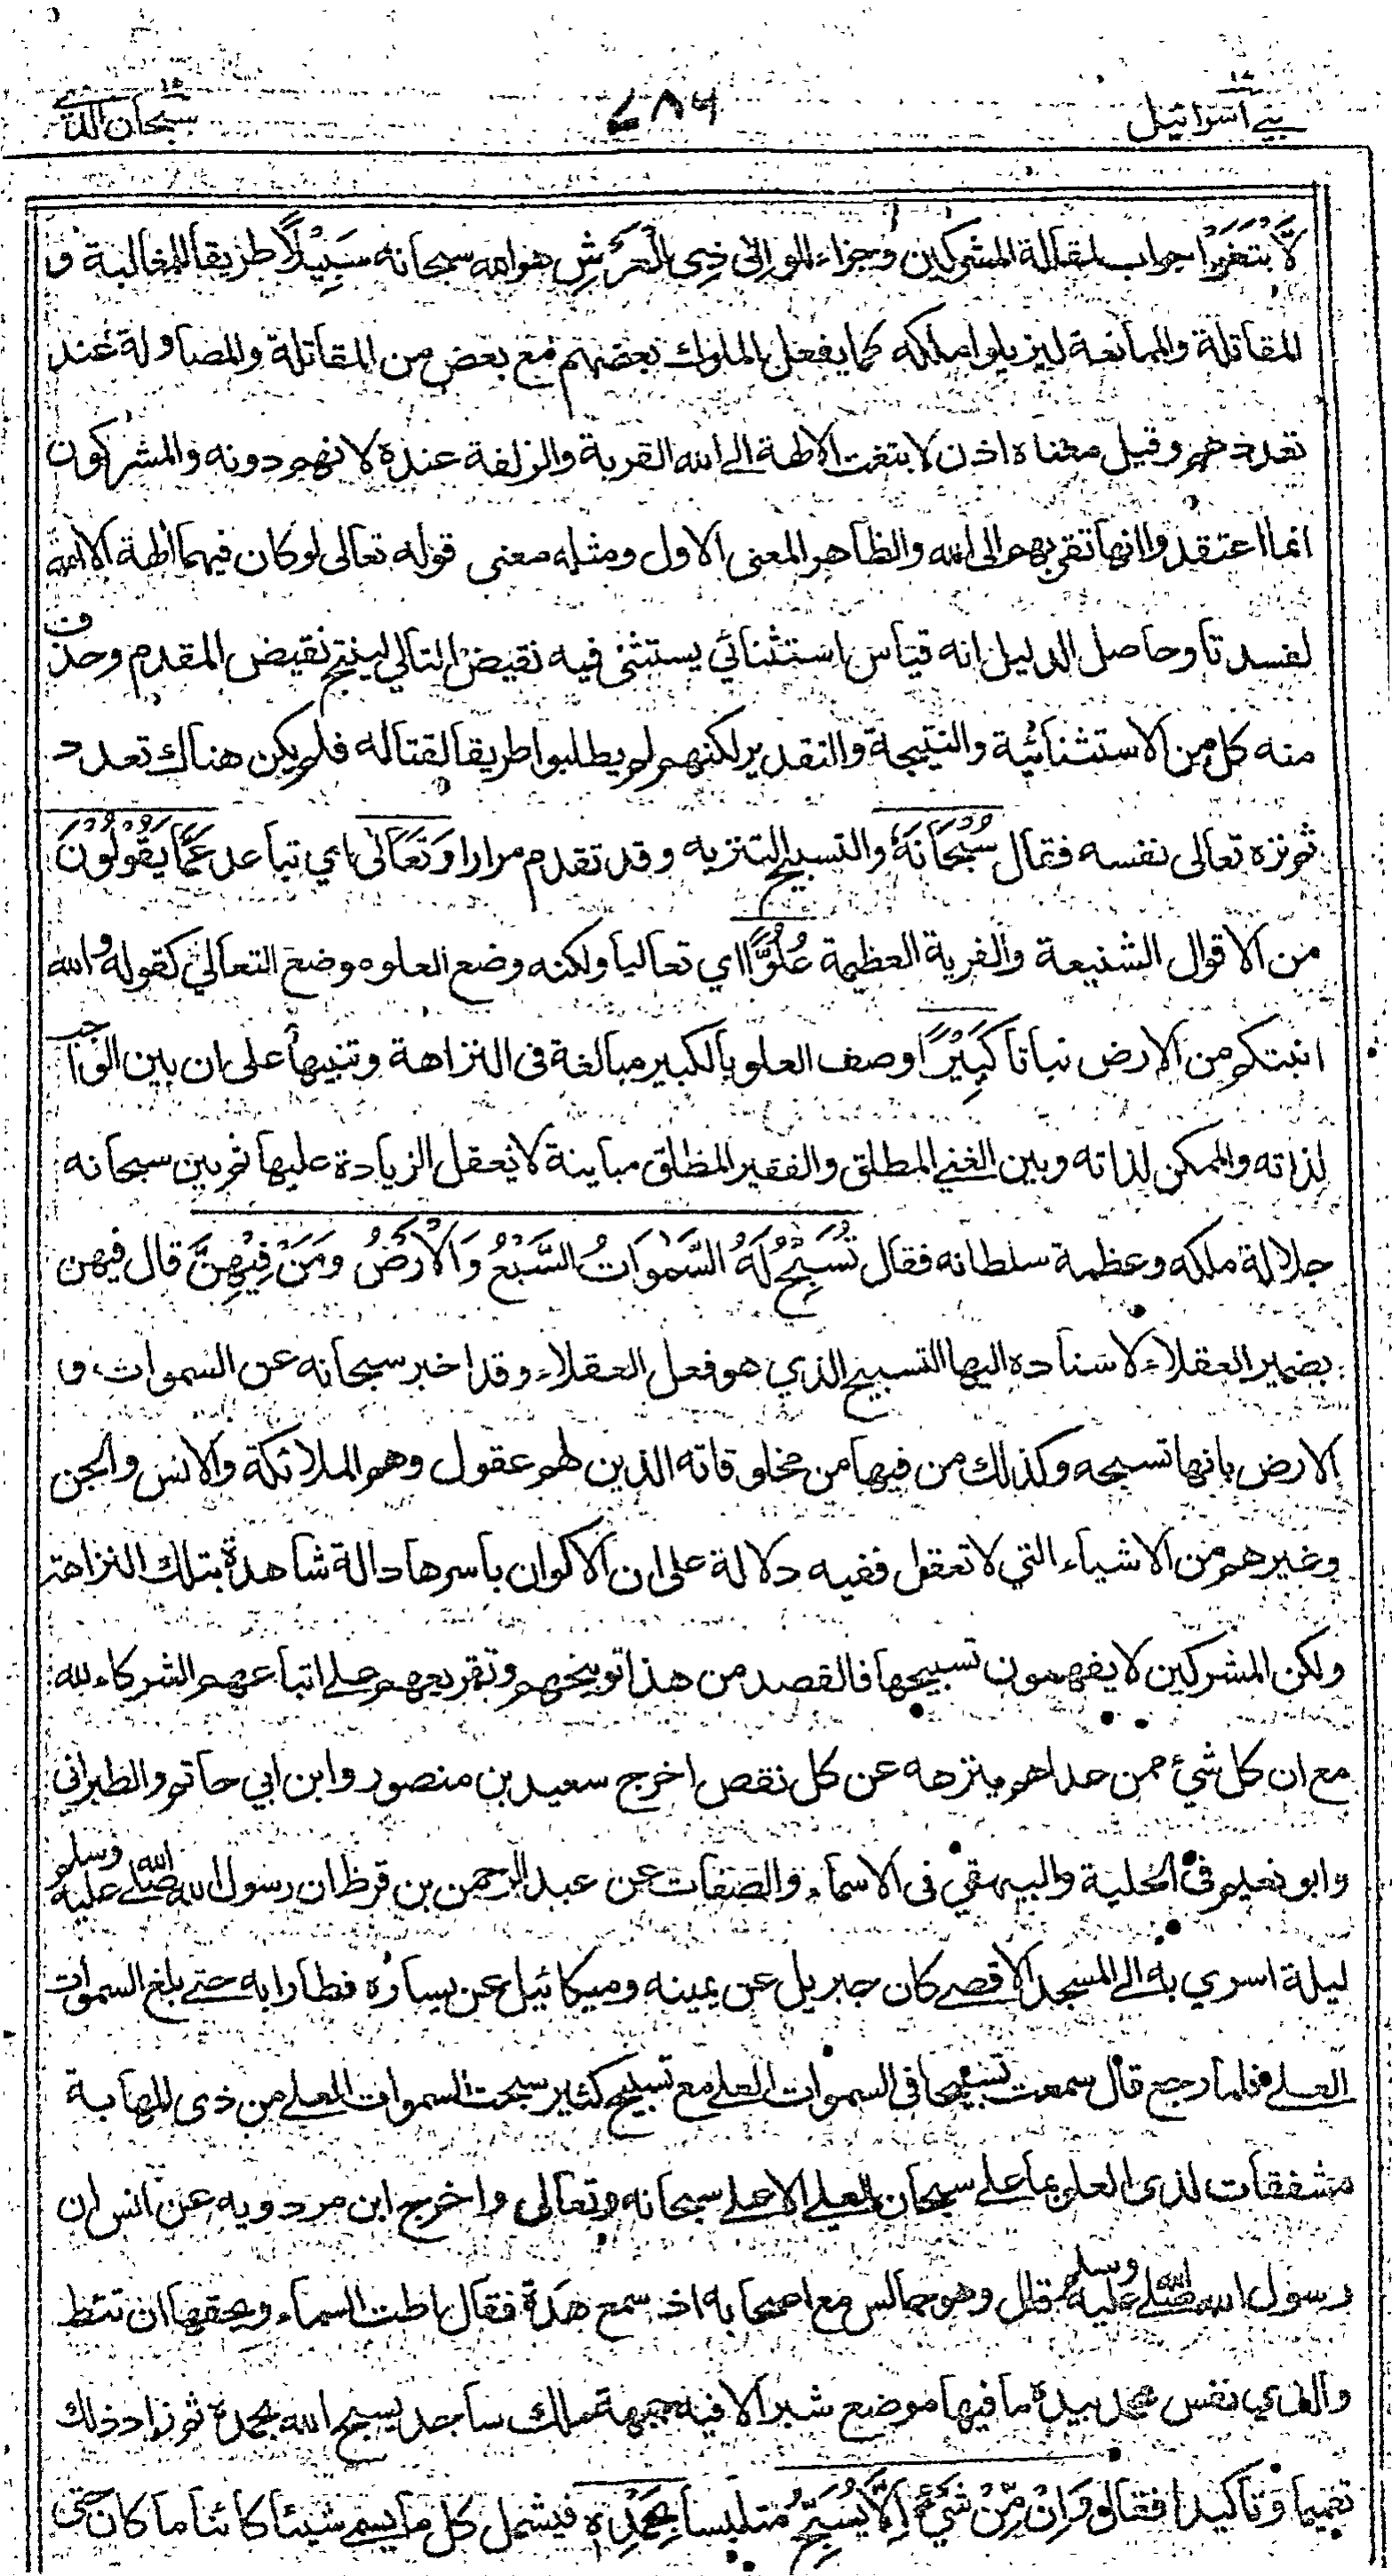 بنی اسرائیل ١٧
٧٨٦
سبحان الذی ١٥
لَّابْتَغَوْا جواب لمقالة المشركين وجزاء للو اِلٰى ذِى الْعَرْشِ هو الله سبحانه سَبِيْلًا طريقا للمغالبة و
المقاتلة والممانعة ليزيلوا ملكه كما يفعل الملوك بعضهم مع بعض من المقاتلة والمصاولة عند
تعددهم وقيل معناه اذن لابتغت الالهة الى الله القربة والزلفة عنده لانهم دونه والمشركون
انما اعتقدوا انها تقربهم الى الله والظاهر المعنى الاول ومثله معنى قوله تعالى لو كان فيهما الهة الا الله
لفسدتا وحاصل الدليل انه قياس استثنائي يستثنى فيه نقيض التالي لينتج نقيض المقدم وحذف
منه كل من الاستثنائية والنتيجة والتقدير لكنهم لم يطلبوا طريقا لقتاله فلم يكن هناك تعدد
ثم نزه تعالى نفسه فقال سُبْحَانَهٗ والتسبيح التنزيه وقد تقدم مرارا وَتَعَالٰى اي تباعد عَمَّا يَقُوْلُوْنَ
من الاقوال الشنيعة والفرية العظيمة عُلُوًّا اي تعاليا ولكنه وضع العلو موضع التعالي كقوله والله
انبتكم من الارض نباتا كَبِيْرًا وصف العلو بالكبير مبالغة فى النزاهة وتنبيها على ان بين الواجب
لذاته والممكن لذاته وبين الغني المطلق والفقير المطلق مباينة لا تعقل الزيادة عليها ثم بين سبحانه
جلالة ملكه وعظمة سلطانه فقال تُسَبِّحُ لَهُ السَّمٰوَاتُ السَّبْعُ وَالْاَرْضُ وَمَنْ فِيْهِنَّ قال فيهن
بضمير العقلاء لاسناده اليها التسبيح الذي هو فعل العقلاء وقد اخبر سبحانه عن السموات و
الارض بانها تسبحه وكذلك من فيها من مخلوقاته الذين لهم عقول وهم الملائكة والانس والجن
وغيرهم من الاشياء التي لا تعقل ففيه دلالة على ان الاكوان باسرها دالة شاهدة بتلك النزاهة
ولكن المشركين لا يفهمون تسبيحها فالقصد من هذا توبيخهم وتقريعهم على اتباعهم الشركاء لله
مع ان كل شئ ممن عداهم ينزهه عن كل نقص اخرج سعيد بن منصور وابن ابي حاتم والطبراني
وابو نعيم فى الحلية والبيهقي فى الاسماء والصفات عن عبد الرحمن بن قرظ ان رسول الله صلى الله عليه وسلم
ليلة اسري به الى المسجد الاقصى كان جبريل عن يمينه وميكائيل عن يساره فطارا به حتى بلغ السموات
العلى فلما رجع قال سمعت تسبيحا فى السموات العلى مع تسبيح كثير سبحت السموات العلى من ذى المهابة
مشفقات لذى العلو بما على سبحان العلي الاعلى سبحانه وتعالى واخرج ابن مردويه عن انس ان
رسول الله صلى الله عليه وسلم قال وهو جالس مع اصحابه اذ سمع هدة فقال اطت السماء ويحقها ان تئط
والذي نفس محمد بيده ما فيها موضع شبر الا فيه جبهة ملك ساجد يسبح الله بحمده ثم زاد ذلك
تعميما وتأكيدا فقال وَاِنْ مِّنْ شَيْءٍ اِلَّا يُسَبِّحُ متلبسا بِحَمْدِهٖ فيشمل كل ما يسمى شيئا كائنا ما كان حتى